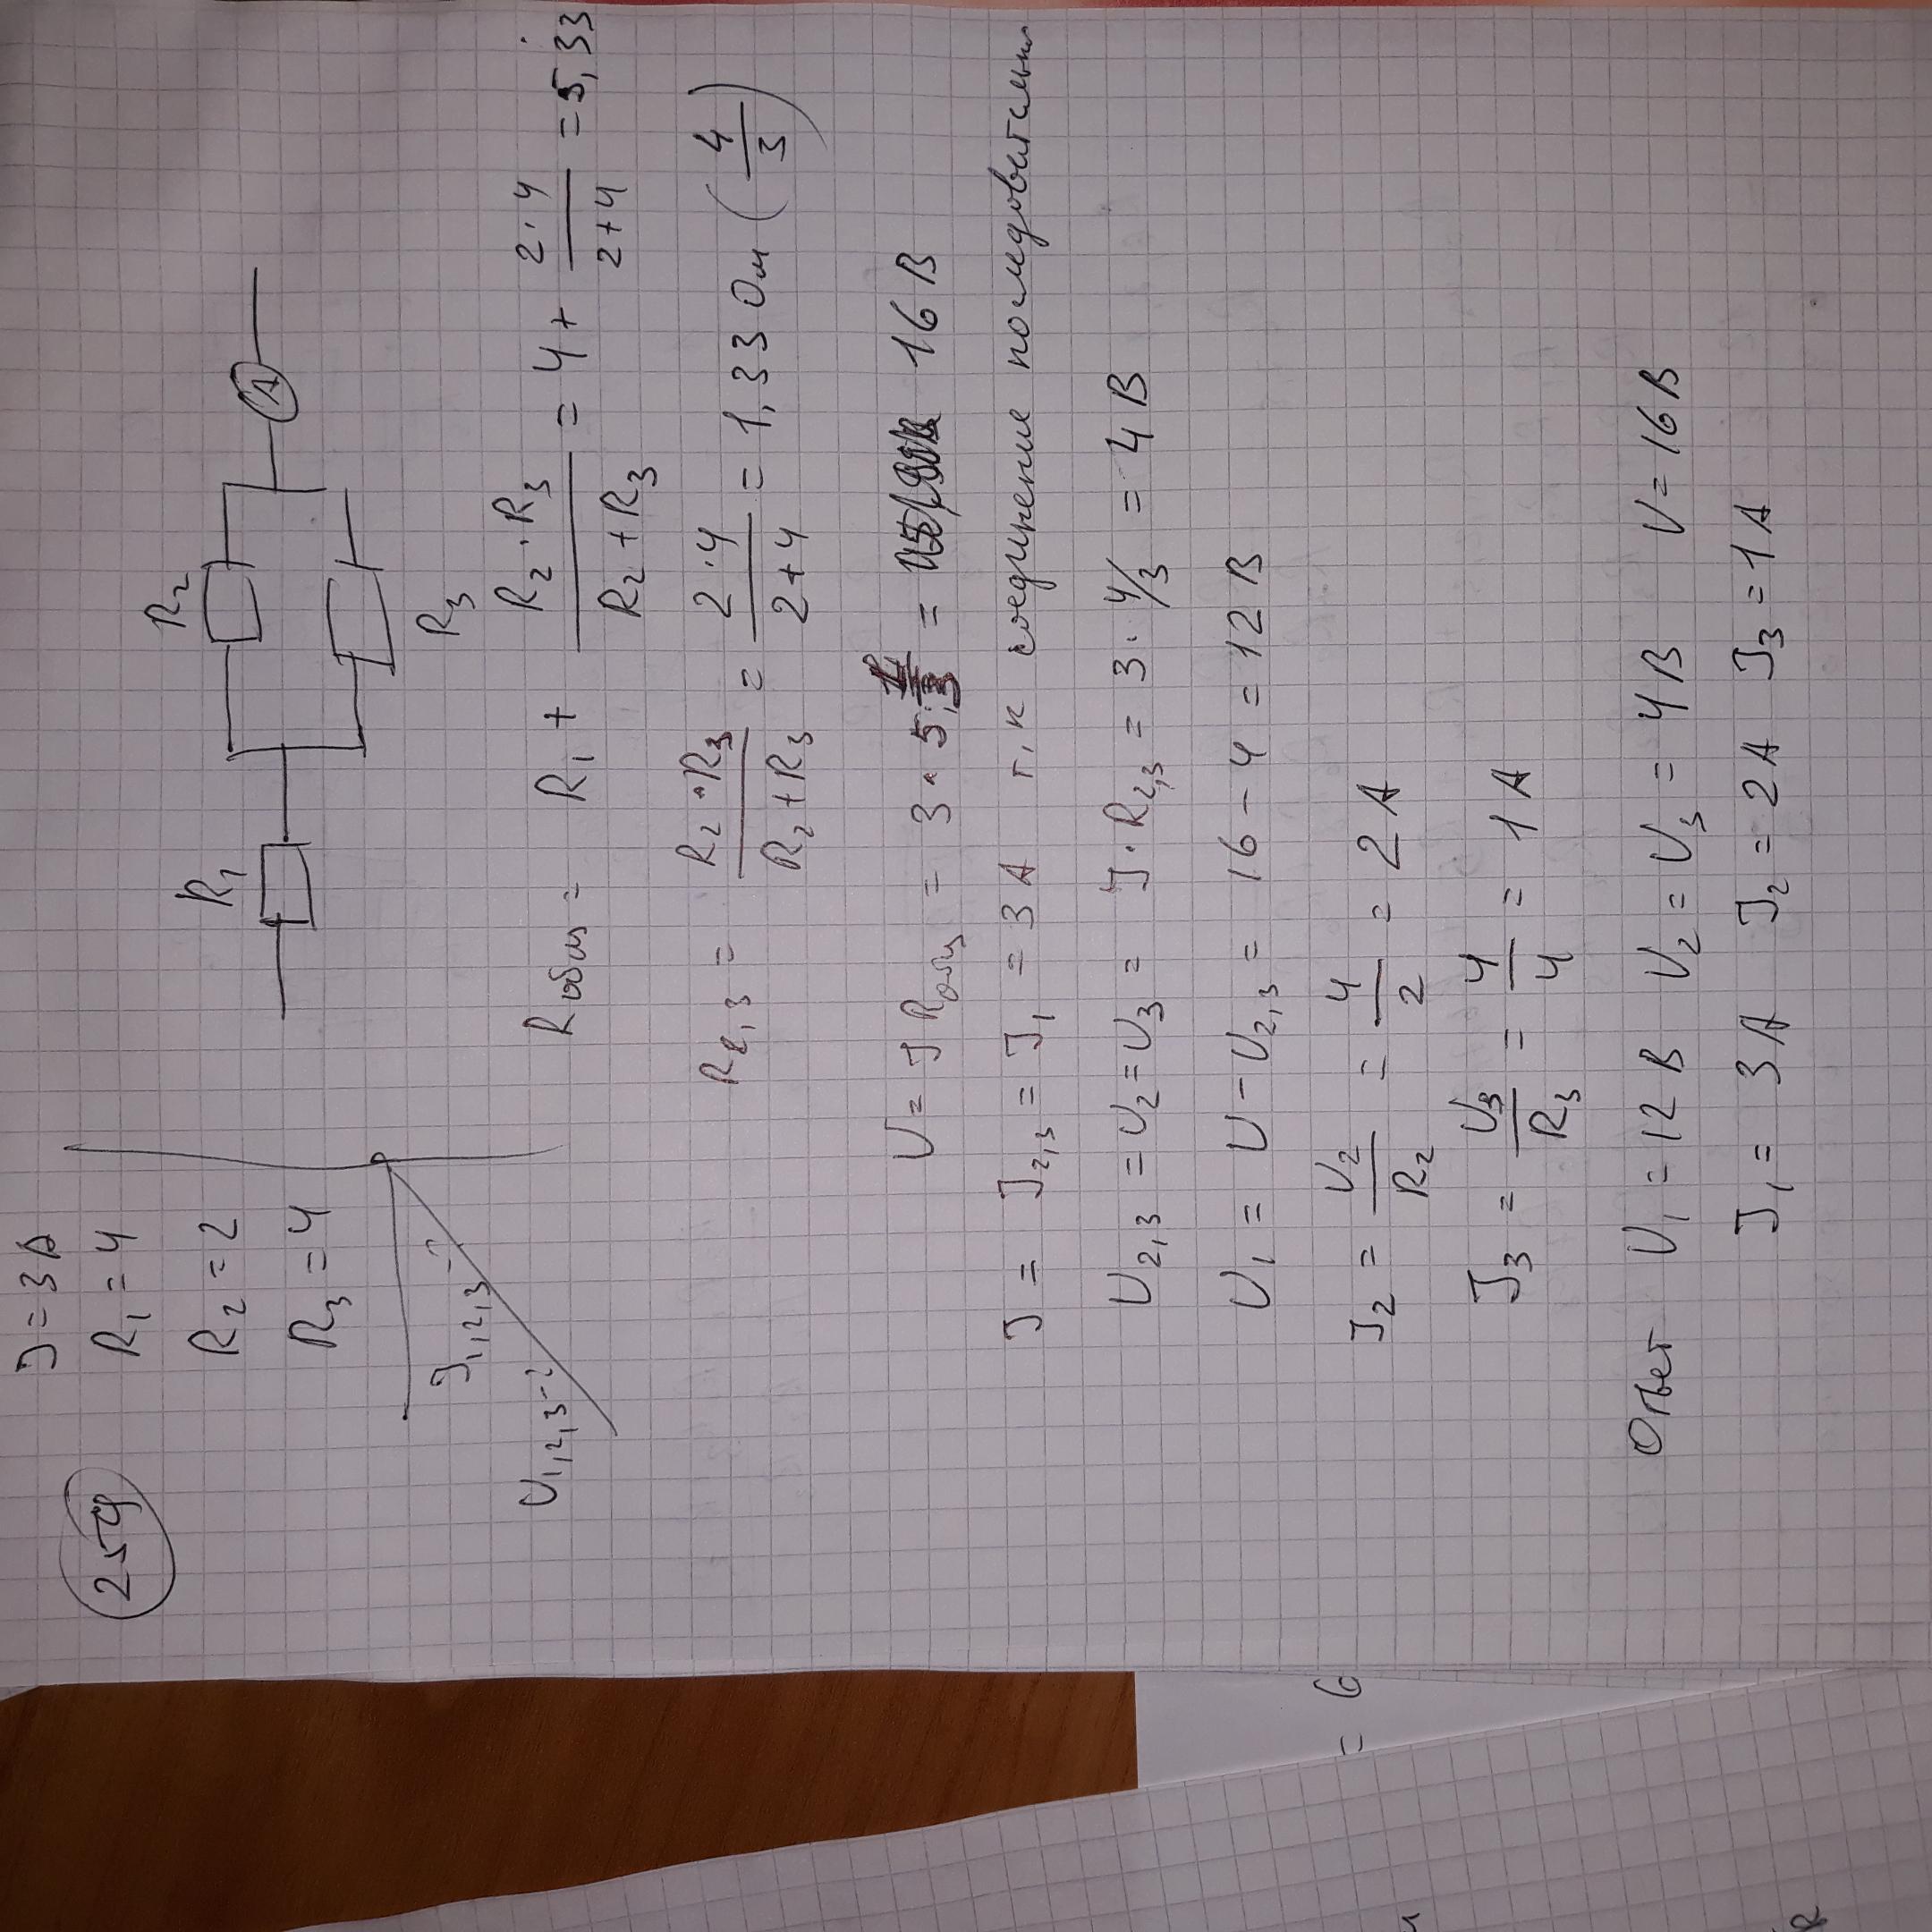 259
J = 3A
R1 = 4
R2 = 2
R3 = 4
J1,2,3 - ?
U1,2,3 - ?
R1
R2
R3
A
Rобщ = R1 + R2 · R3 / R2 + R3 = 4 + 2 · 4 / 2 + 4 = 5,33
R2,3 = R2 · R3 / R2 + R3 = 2 · 4 / 2 + 4 = 1,33 Ом (4/3)
U = J Rобщ = 3 · 5,3 = 16 В
J = J2,3 = J1 = 3 А т,к соединение последовательно
U2,3 = U2 = U3 = J · R2,3 = 3 · 4/3 = 4 В
U1 = U - U2,3 = 16 - 4 = 12 В
J2 = U2 / R2 = 4 / 2 = 2 А
J3 = U3 / R3 = 4 / 4 = 1 А
Ответ U1 = 12 В U2 = U3 = 4 В U = 16 В
J1 = 3 А J2 = 2 А J3 = 1 А
= 6
R